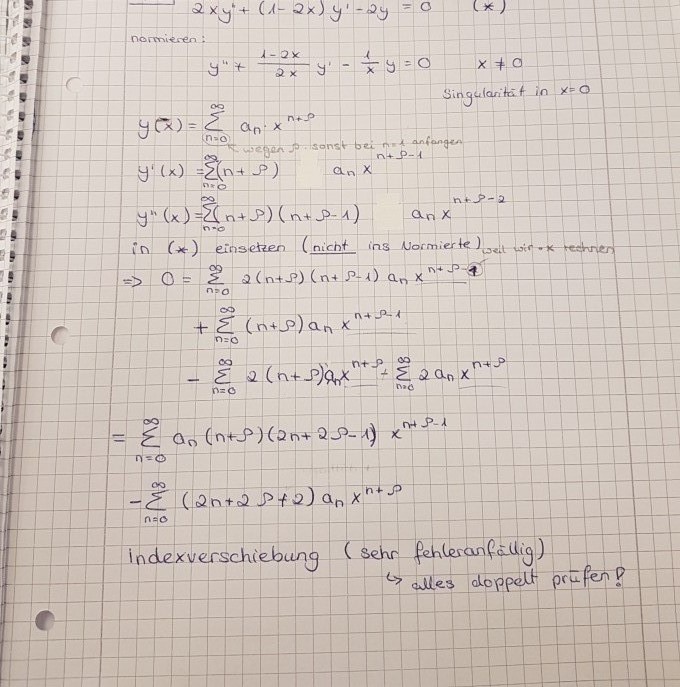 2xy" + (1-2x) y' - 2y = 0 (*)
normieren:
y" + \frac{1-2x}{2x} y' - \frac{1}{x} y = 0 x ≠ 0
Singularität in x=0
y(x) = \sum_{n=0}^{∞} a_n · x^{n+ρ}
↖ wegen ρ sonst bei n=1 anfangen
y'(x) = \sum_{n=0}^{∞} (n+ρ) a_n x^{n+ρ-1}
y"(x) = \sum_{n=0}^{∞} (n+ρ)(n+ρ-1) a_n x^{n+ρ-2}
in (*) einsetzen (nicht ins Normierte) weil wir ·x rechnen
=> 0 = \sum_{n=0}^{∞} 2(n+ρ)(n+ρ-1) a_n x^{n+ρ-1}
+ \sum_{n=0}^{∞} (n+ρ) a_n x^{n+ρ-1}
- \sum_{n=0}^{∞} 2(n+ρ) a_n x^{n+ρ} - \sum_{n=0}^{∞} 2 a_n x^{n+ρ}
= \sum_{n=0}^{∞} a_n (n+ρ)(2n+2ρ-1) x^{n+ρ-1}
- \sum_{n=0}^{∞} (2n+2ρ+2) a_n x^{n+ρ}
indexverschiebung (sehr fehleranfällig)
↳ alles doppelt prüfen!